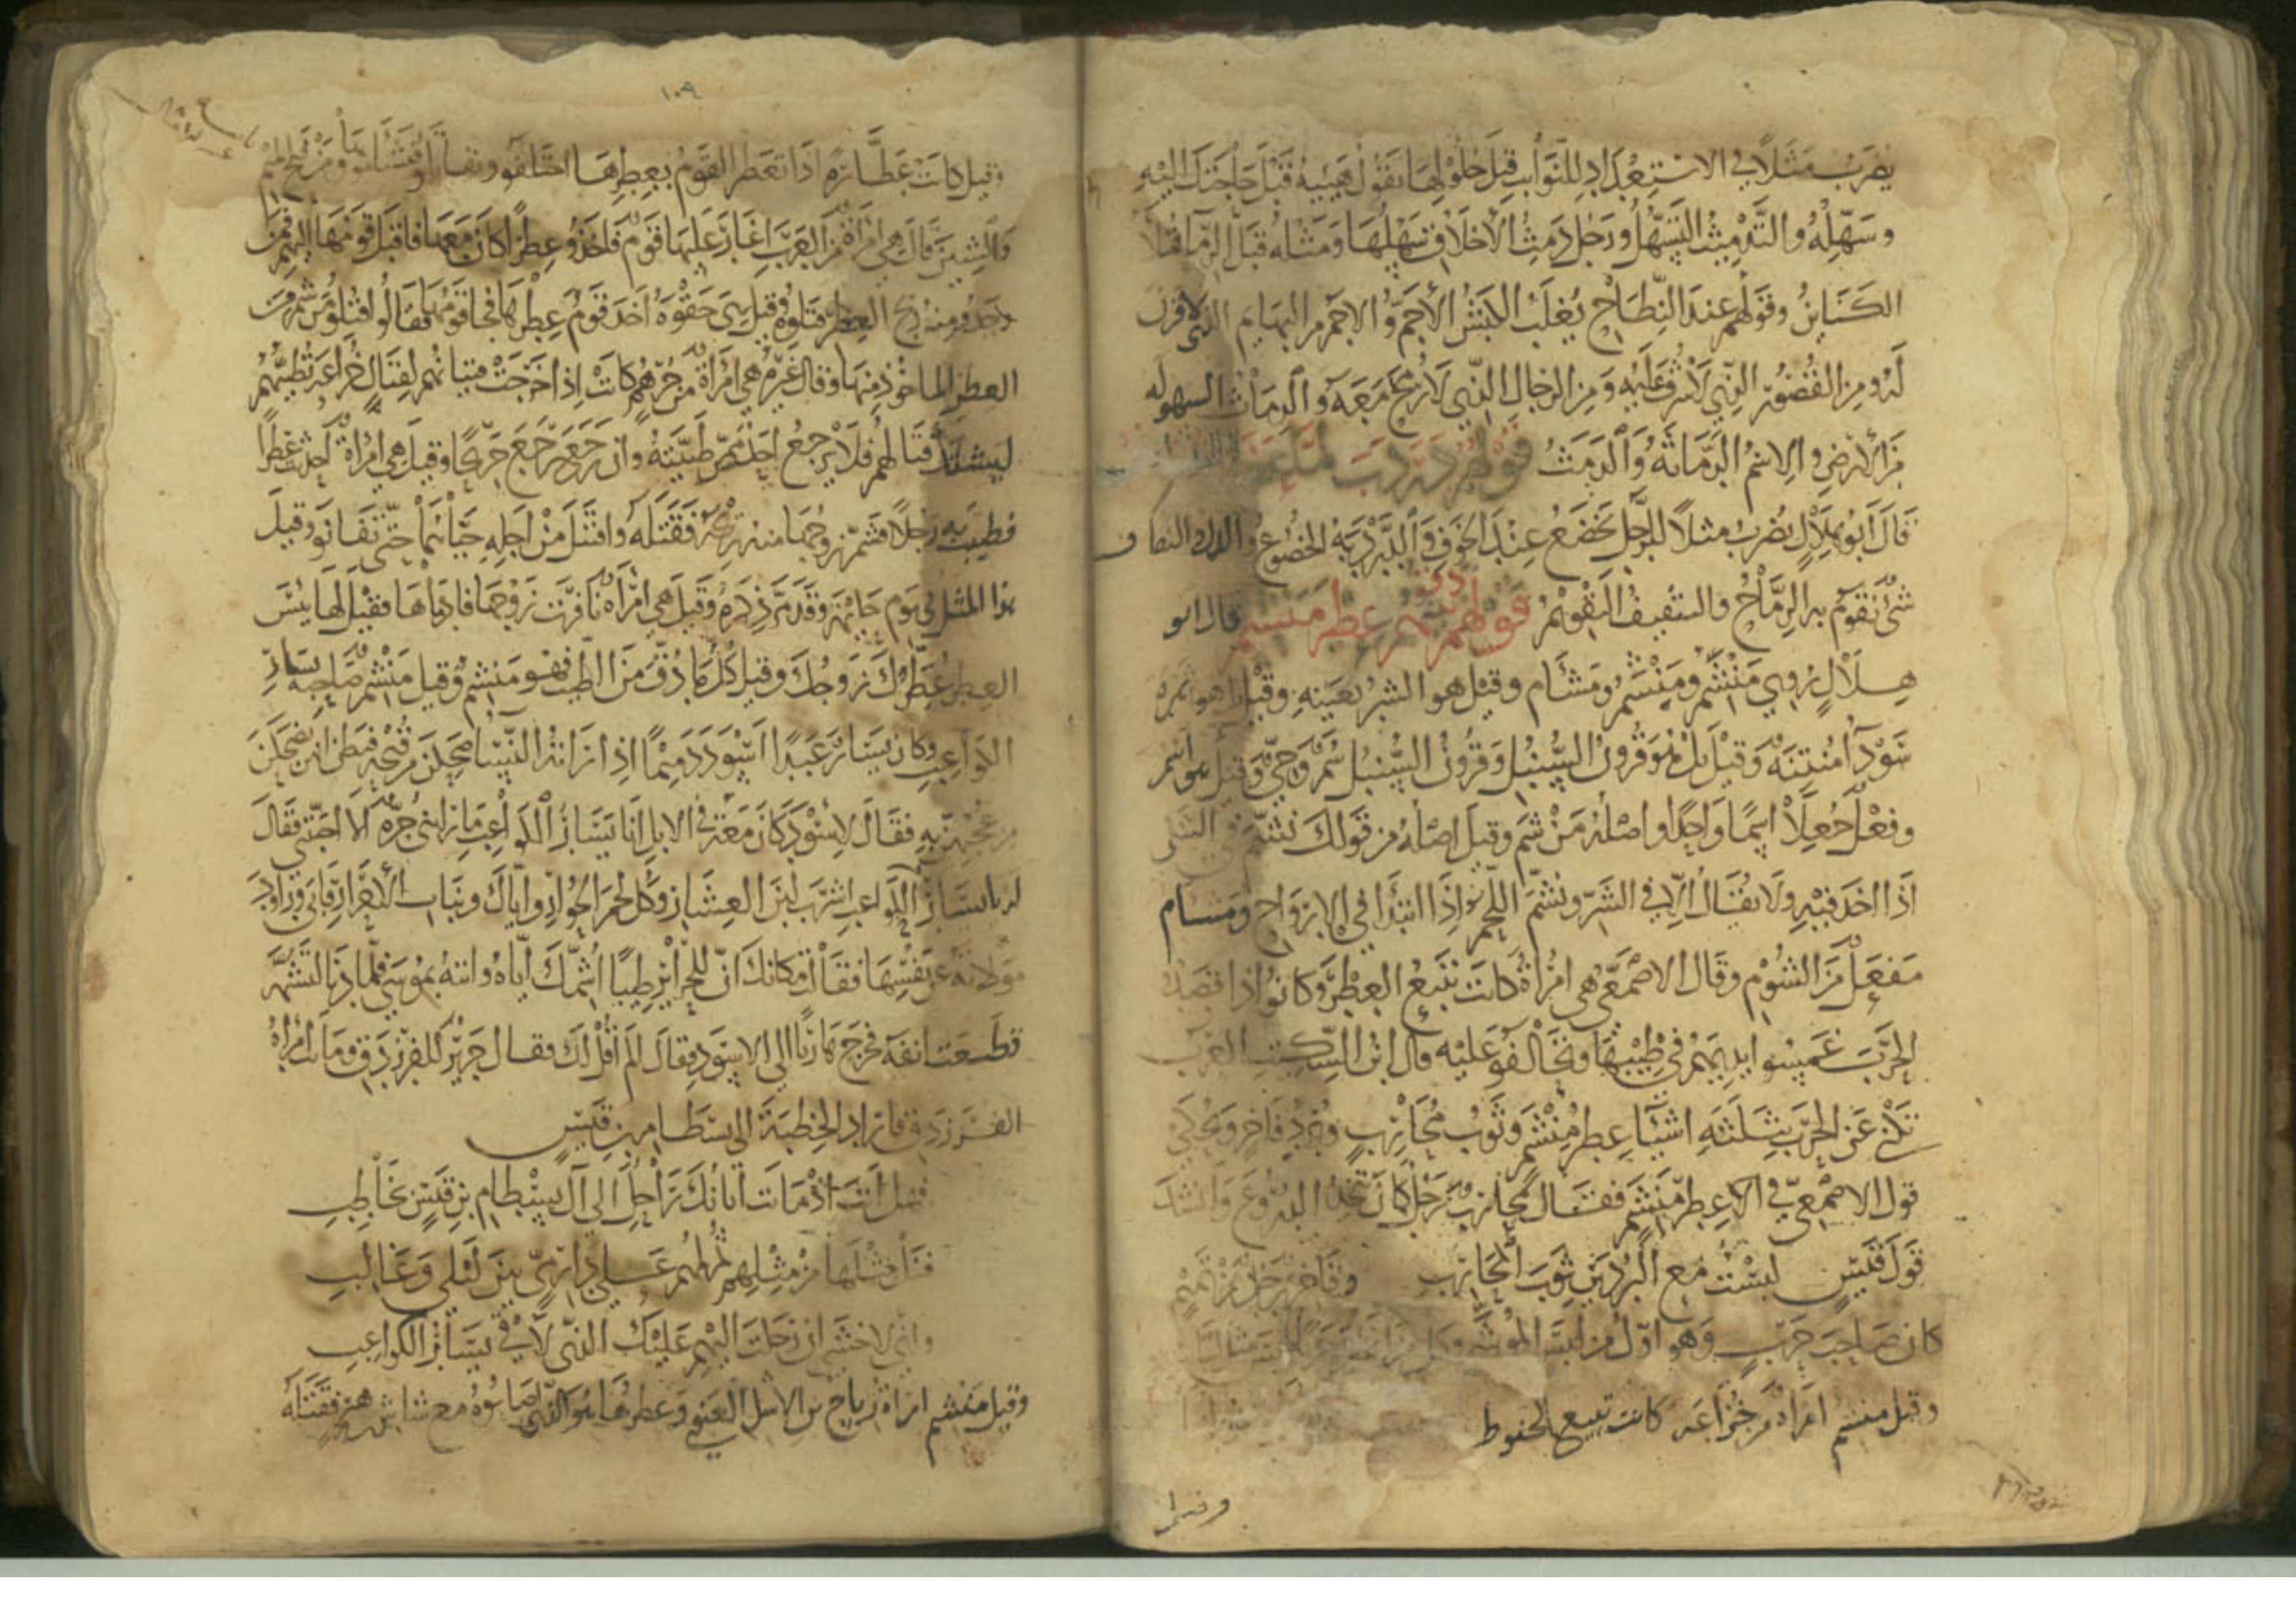 يضرب مثلا في الاستعداد للنوائب قبل حلولها يقول هيئه قبل حاجتك اليه
وسهله والتدميث التسهيل ورجل دمث الأخلاق سهلها ومثله قبل الرماء تملأ
الكنائن وقولهم عند النطاح يغلب الكبش الأجم والاجم من البهائم الذي لا قرن
له ومن القصور الذي لا شرف عليه ومن الرجال الذي لا رمح معه والدماث السهوله
من الأرض والاسم الدماثة والدمث قولهم دردب لما عضه الثقاف
قال ابو هلال يضرب مثلا للرجل يخضع عند الخوف والدردبة الخضوع والثقاف
شئ تقوم به الرماح والتثقيف التقويم قولهم دق بينهم عطر منشم قال ابو
هلال روي منشم ومنشم ومشأم وقيل هو الشر بعينه وقيل هو ثمره
سودآ منتنة وقيل بل هو قرون السنبل وقرون السنبل سم وحي وقيل هو اسم
وفعل جعلا اسما واحدا واصله من شم وقيل اصله من قولك نشم في الشي
اذا اخذ فيه ولا يقال الا في الشر ونشم اللحم اذا ابتدا في الارواح ومشام
مفعل من الشوم وقال الاصمعي هي امرأة كانت تبيع العطر وكانوا اذا قصدوا
الحرب غمسوا ايديهم في طيبها وتحالفو عليه وقال ابن السكيت العرب
تكني عن الحرب بثلثة اشيا عطر منشم وثوب محارب وبرد فاخر وحكي
قول الاصمعي في عطر منشم فقال محارب رجل كان يتخذ الدروع وانشد
قول قيس لبست مع البردين ثوب المحارب وفاخر رجل من تميم
كان صاحب حرب وهو اول من لبس الموشى
وقيل منشم امراة من خزاعه كانت تبيع الحنوط
وقيل
١٠٩
وقيل كانت عطارة اذا تعطر القوم بعطرها اختلفو ومن فتح الميم
والشين قال هي امراة من العرب اغار عليها قوم فاخذو عطرا كان معها فاقبل قومها اليهم فمن
وجدو منه ريح العطر قتلوه وقيل سمى حقوه اخذ قوم عطرها فجا قومها فقالوا اقتلو من شم من
العطر الماخوذ منها وقال غيرهم هي امراة من جرهم كانت اذا خرجت فتيانهم لقتال خزاعه تطيبهم
ليشتد قتالهم فلا يرجع احد ممن طيبته وان رجع رجع جريحا وقيل هي امراة احدثت عطرا
فطيبت به رجلا فشم زوجها منه ريحه فقتله واقتتل من اجله حياهما حتى تفانو وقيل
هذا المثل في يوم حليمة وقد مر ذكره وقيل هي امراة نافرت زوجها فادماها فقيل لها بئس
العطر عطرك زوجك وقيل كل ما دق من الطيب فهو منشم وقيل منشم صاحبة يسار
الكواعب وكان يسار عبدا اسود دميما اذا راته النسا ضحكن من قبحه فيظن انهن يضحكن
من عجبهن به فقال لاسود كان معه في الابل انا يسار الكواعب ما راتني حرة الا احبتني فقال
له يا يسار الكواعب اشرب لبن العشار وكل لحم الحوار واياك وبنات الأحرار فابى وراود
مولاته عن نفسها فقالت مكانك ان للحرائر طيبا اشمك اياه واتته بموسى فلما دنا لتشمه
قطعت انفه فخرج هاربا الى الاسود فقال الم اقل لك فقال جرير للفرزدق وماتت امراة
الفرزدق فاراد الخطبة الى بسطام بن قيس
فهل انت اذ ماتت اتانك راحل الى آل بسطام بن قيس بخاطب
فنل مثلها من مثلهم ثم لمهم على دارمي بين ليلى وغالب
واني لاخشى ان رحلت اليهم عليك الذي لاقى يسار الكواعب
وقيل منشم امراة رياح بن الأسل الغنوي وعطرها هو الذي اصابوه مع شاس بن زهير فقتله